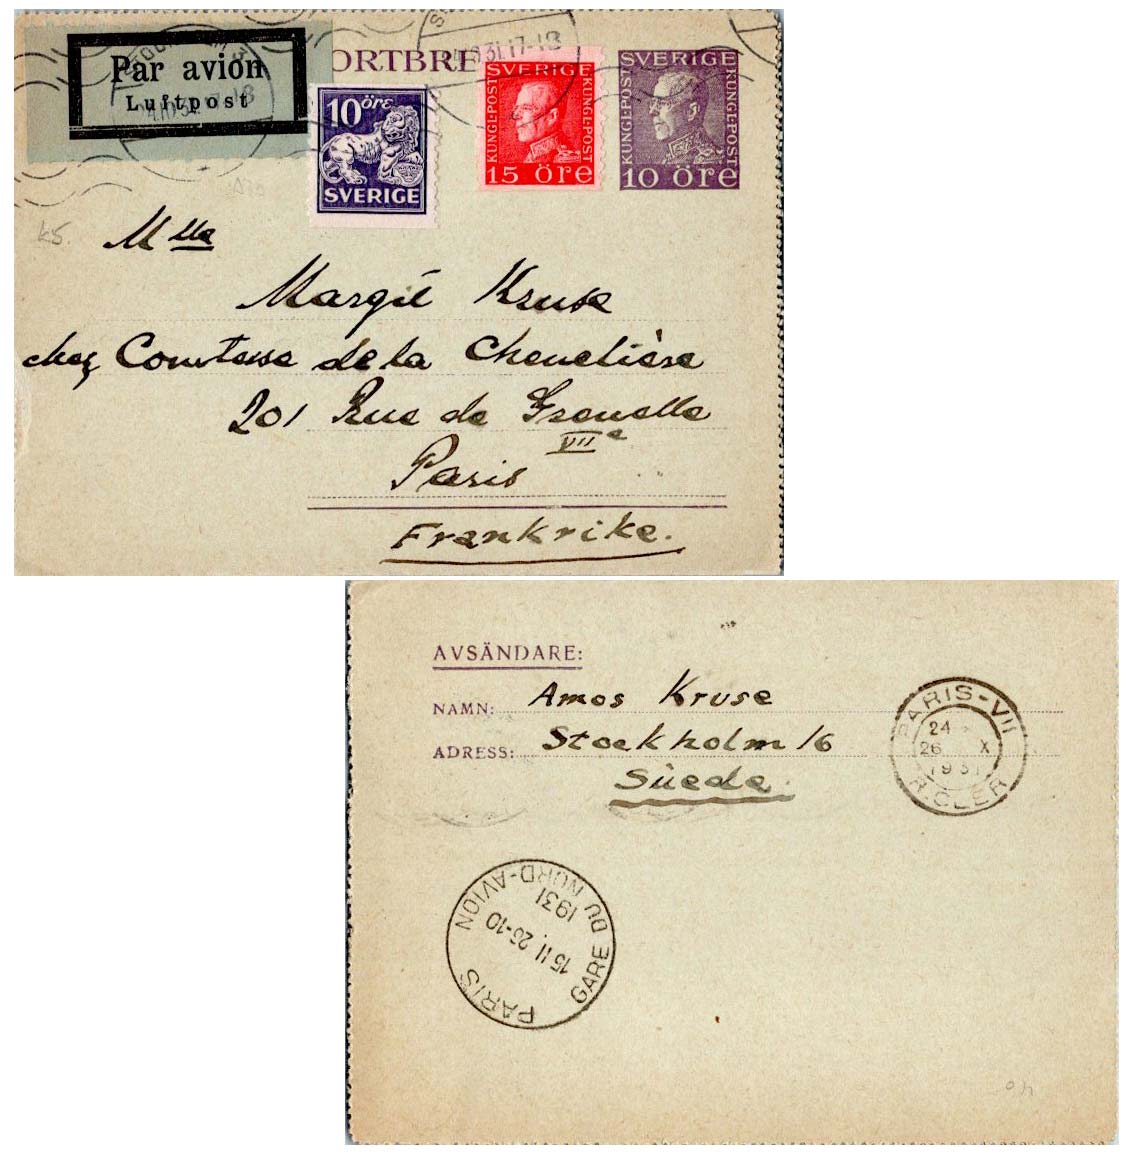 Par avion
Luftpost
ORTBRE
17-18
10 öre
SVERIGE
SVERIGE
KUNGL-POST
KUNGL-POST
15 öre
SVERIGE
KUNGL-POST
KUNGL-POST
10 öre
k5.
Mlle
Margit Kruse
chez Comtesse de la Chenelière
201 Rue de Grenelle
VIIe
Paris
Frankrike.
AVSÄNDARE:
NAMN: Amos Kruse
ADRESS: Stockholm 16
Suède.
PARIS-VII
24
26 X
1931
R.CLER
PARIS
GARE DU NORD-AVION
15 H 26-10
1931